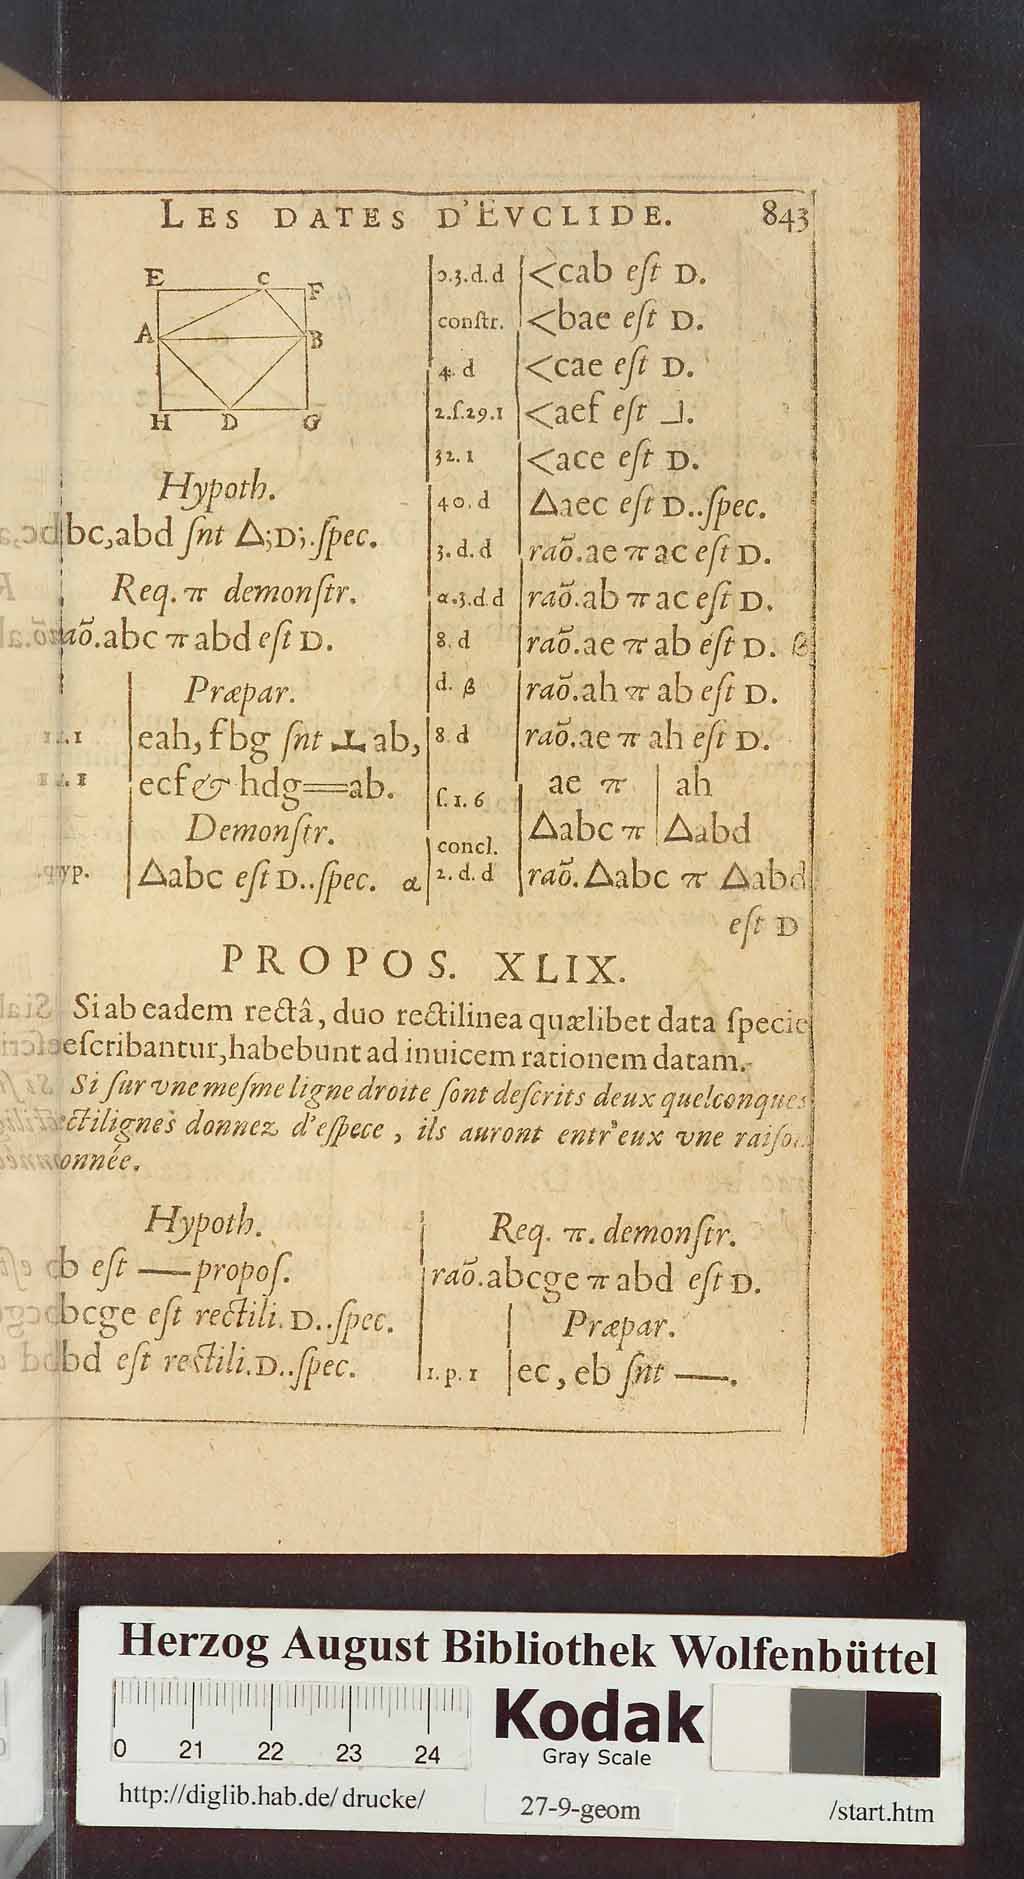 LES DATES D'EVCLIDE. 843
E C F
A B
H D G
Hypoth.
bc,abd ſnt △;D;.ſpec.
Req. π demonſtr.
raõ.abc π abd eſt D.
Præpar.
eah, fbg ſnt ⊥ ab,
ecf & hdg═ab.
Demonſtr.
yp. △abc eſt D..ſpec. α
3.d.d <cab eſt D.
conſtr. <bae eſt D.
4. d <cae eſt D.
2.ſ.29.1 <aef eſt ⅃.
32.1 <ace eſt D.
40.d △aec eſt D..ſpec.
3.d.d raõ.ae π ac eſt D.
α.3.d.d raõ.ab π ac eſt D.
8.d raõ.ae π ab eſt D. β
d. β raõ.ah π ab eſt D.
8 d raõ.ae π ah eſt D.
ſ.1.6 ae π | ah
△abc π | △abd
concl.
2.d.d raõ.△abc π △abd
eſt D
PROPOS. XLIX.
Si ab eadem rectâ, duo rectilinea quælibet data ſpecie
eſcribantur, habebunt ad inuicem rationem datam.
Si ſur vne meſme ligne droite ſont deſcrits deux quelconques
ectilignes donnez d'eſpece, ils auront entr'eux vne raiſon
onnée.
Hypoth.
b eſt — propoſ.
bcge eſt rectili.D..ſpec.
bd eſt rectili.D..ſpec.
Req. π. demonſtr.
raõ.abcge π abd eſt D.
Præpar.
1.p.1 ec, eb ſnt —.
Herzog August Bibliothek Wolfenbüttel
0 21 22 23 24
Kodak
Gray Scale
http://diglib.hab.de/drucke/ 27-9-geom /start.htm